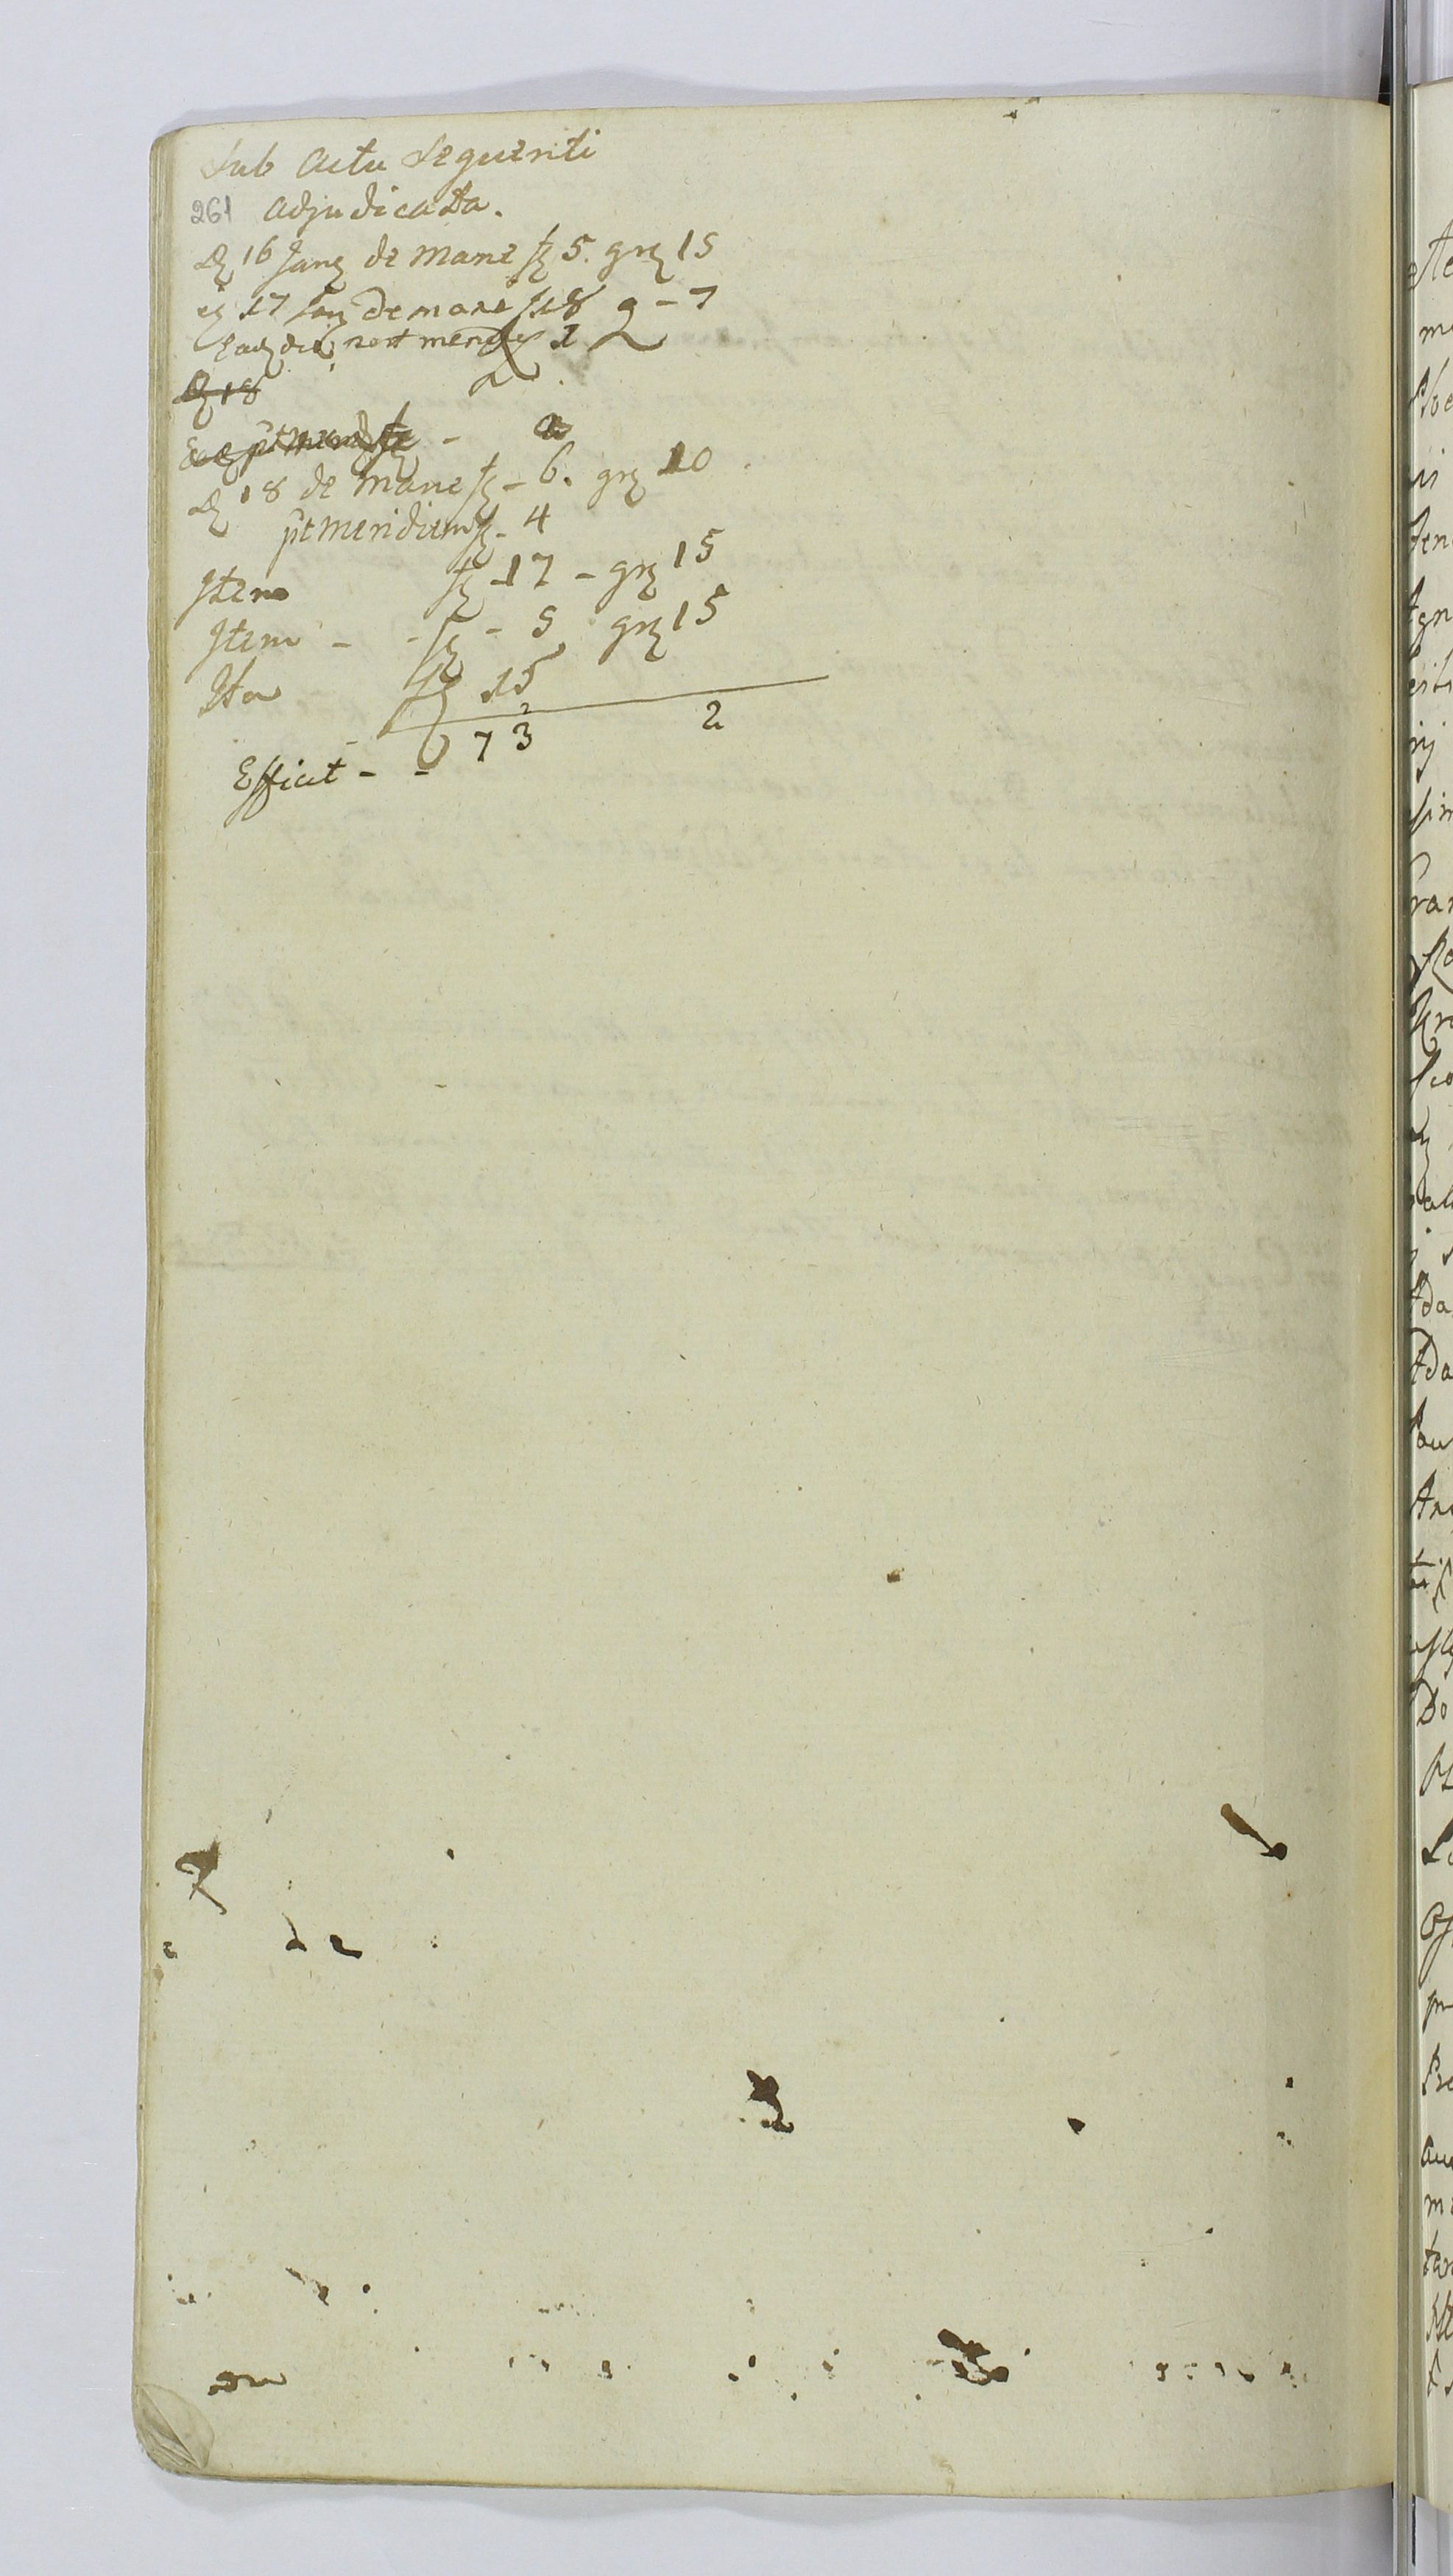 Sub Actu Sequenti
261 adjudicata.
D 16 Jan de mane f 5. gr 15
17 Jan de mane f 18 g - 7
Ead die post merid f 1
D 18
Ead pt merid f -
D 18 de mane f - 6. gr 10
pt meridiem f - 4
Item f - 17 - gr 15
Item - - f - 5 gr 15
Ita f 15
Efficit - - 73 2